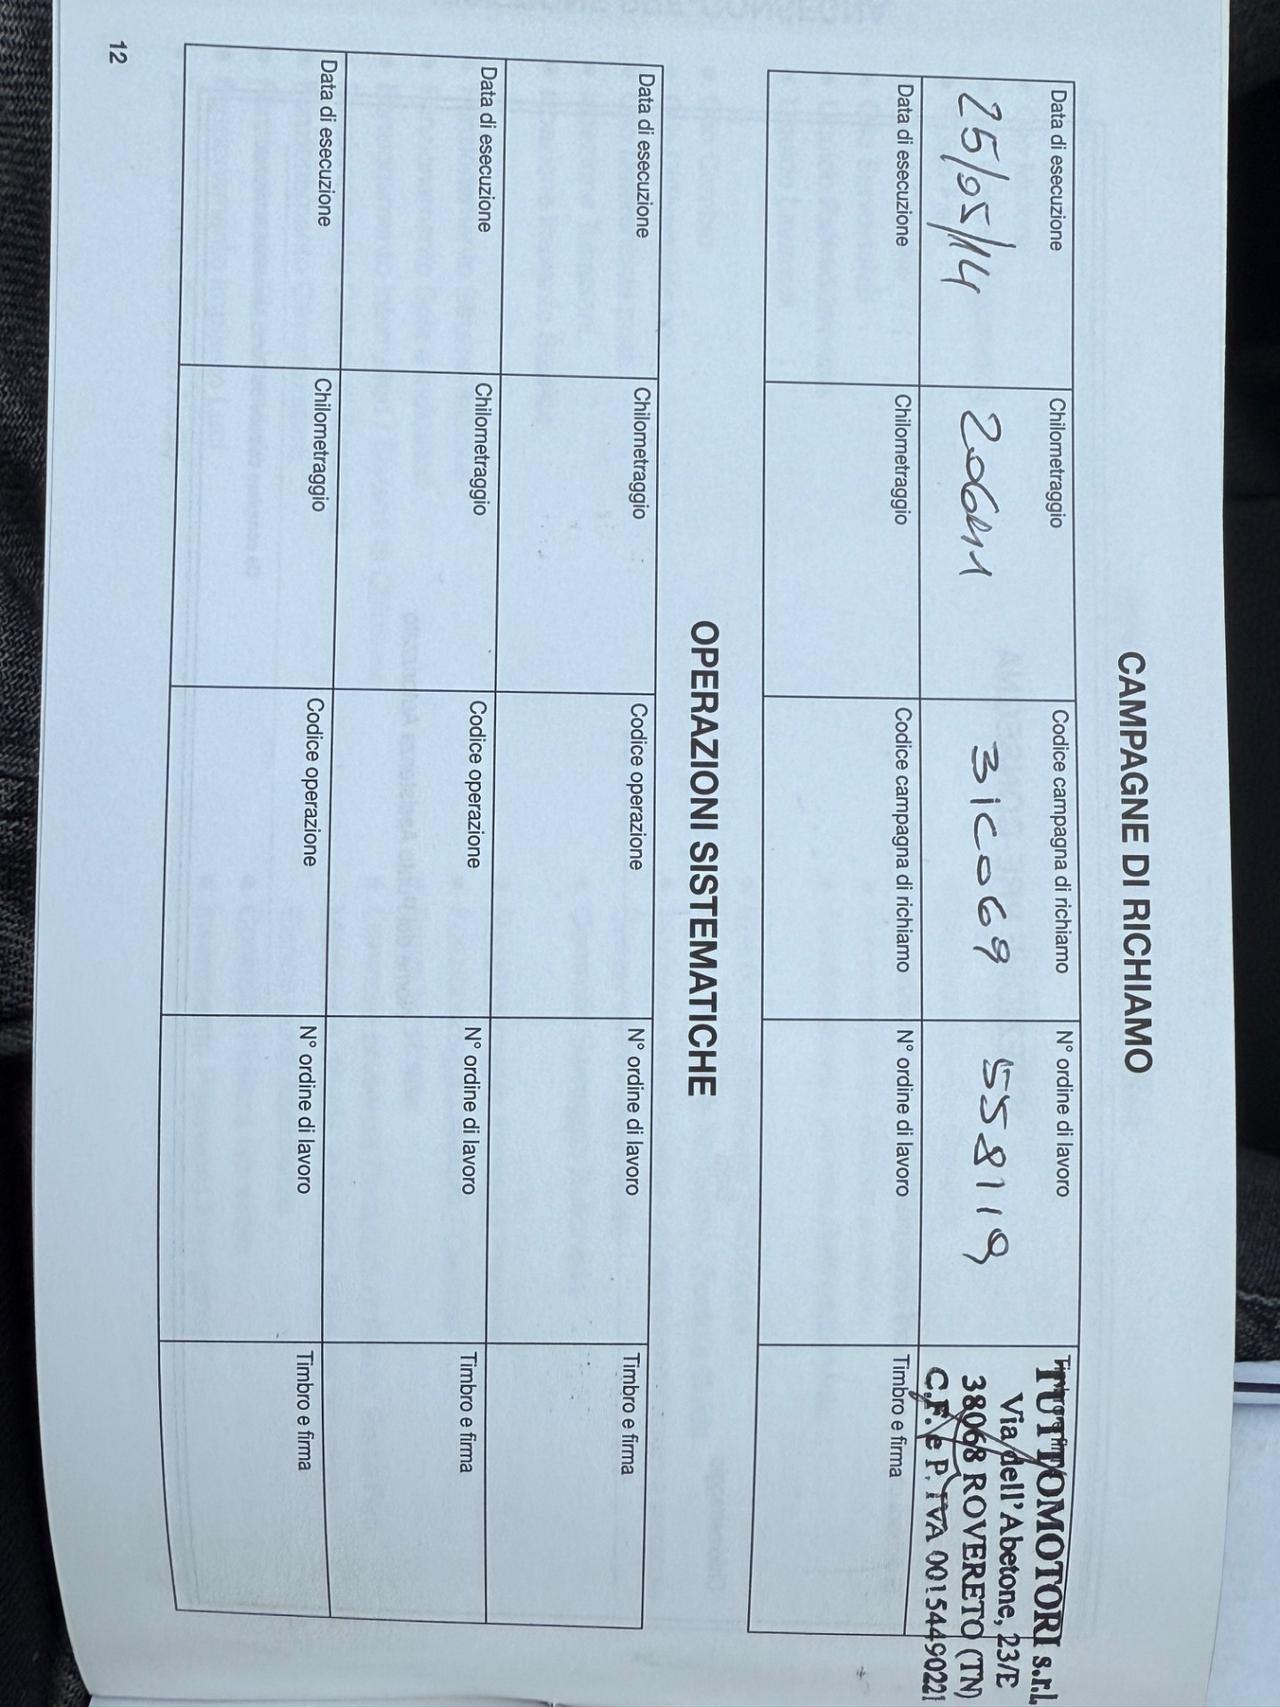 CAMPAGNE DI RICHIAMO
Data di esecuzione
Chilometraggio
Codice campagna di richiamo
N° ordine di lavoro
25/05/14
31C069
558119
TUTTOMOTORI s.r.l.
Via dell'Abetone, 23/E
38068 ROVERETO (TN)
C.F. e P. IVA 00154490221
Data di esecuzione
Chilometraggio
Codice campagna di richiamo
N° ordine di lavoro
Timbro e firma
OPERAZIONI SISTEMATICHE
Data di esecuzione
Chilometraggio
Codice operazione
N° ordine di lavoro
Timbro e firma
Data di esecuzione
Chilometraggio
Codice operazione
N° ordine di lavoro
Timbro e firma
Data di esecuzione
Chilometraggio
Codice operazione
N° ordine di lavoro
Timbro e firma
12